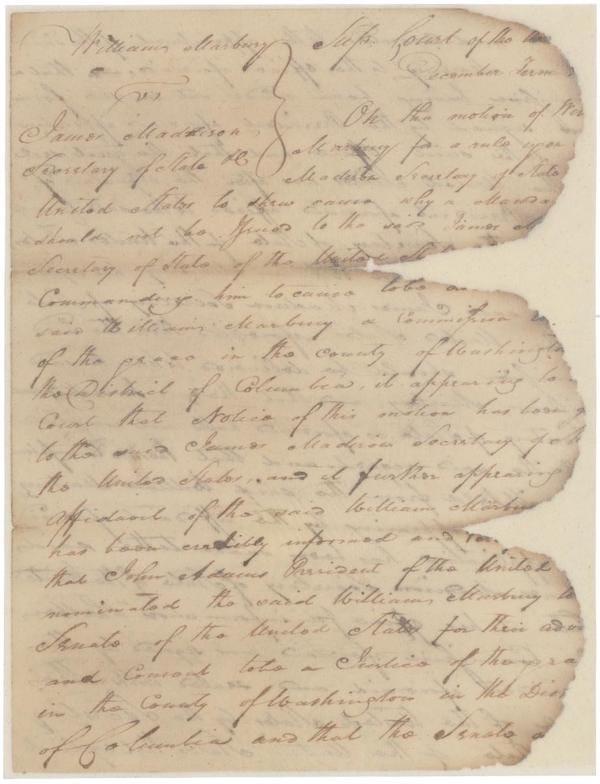 William Marbury } Sup. Court of the
vs December Term
James Maddison, On the motion of Wil
Secretary of State &c Marbury for a rule upon
Madison Secretary of State
United States to shew cause why a Manda
should not be Issued to the said James M
Secretary of State of the United St
Commanding him to cause to be
said William Marbury a Commission
of the peace in the county of Washingto
the District of Columbia, it appearing to
Court that Notice of this motion has been g
to the said James Madison Secretary of
the United States, and it further appearing
Affidavit of the said William Marbu
has been credibly informed and
that John Adams President of the United
nominated the said William Marbury to
Senate of the United States for their adv
and Consent to be a Justice of the pea
in the County of Washington in the Dis
of Columbia and that the Senate